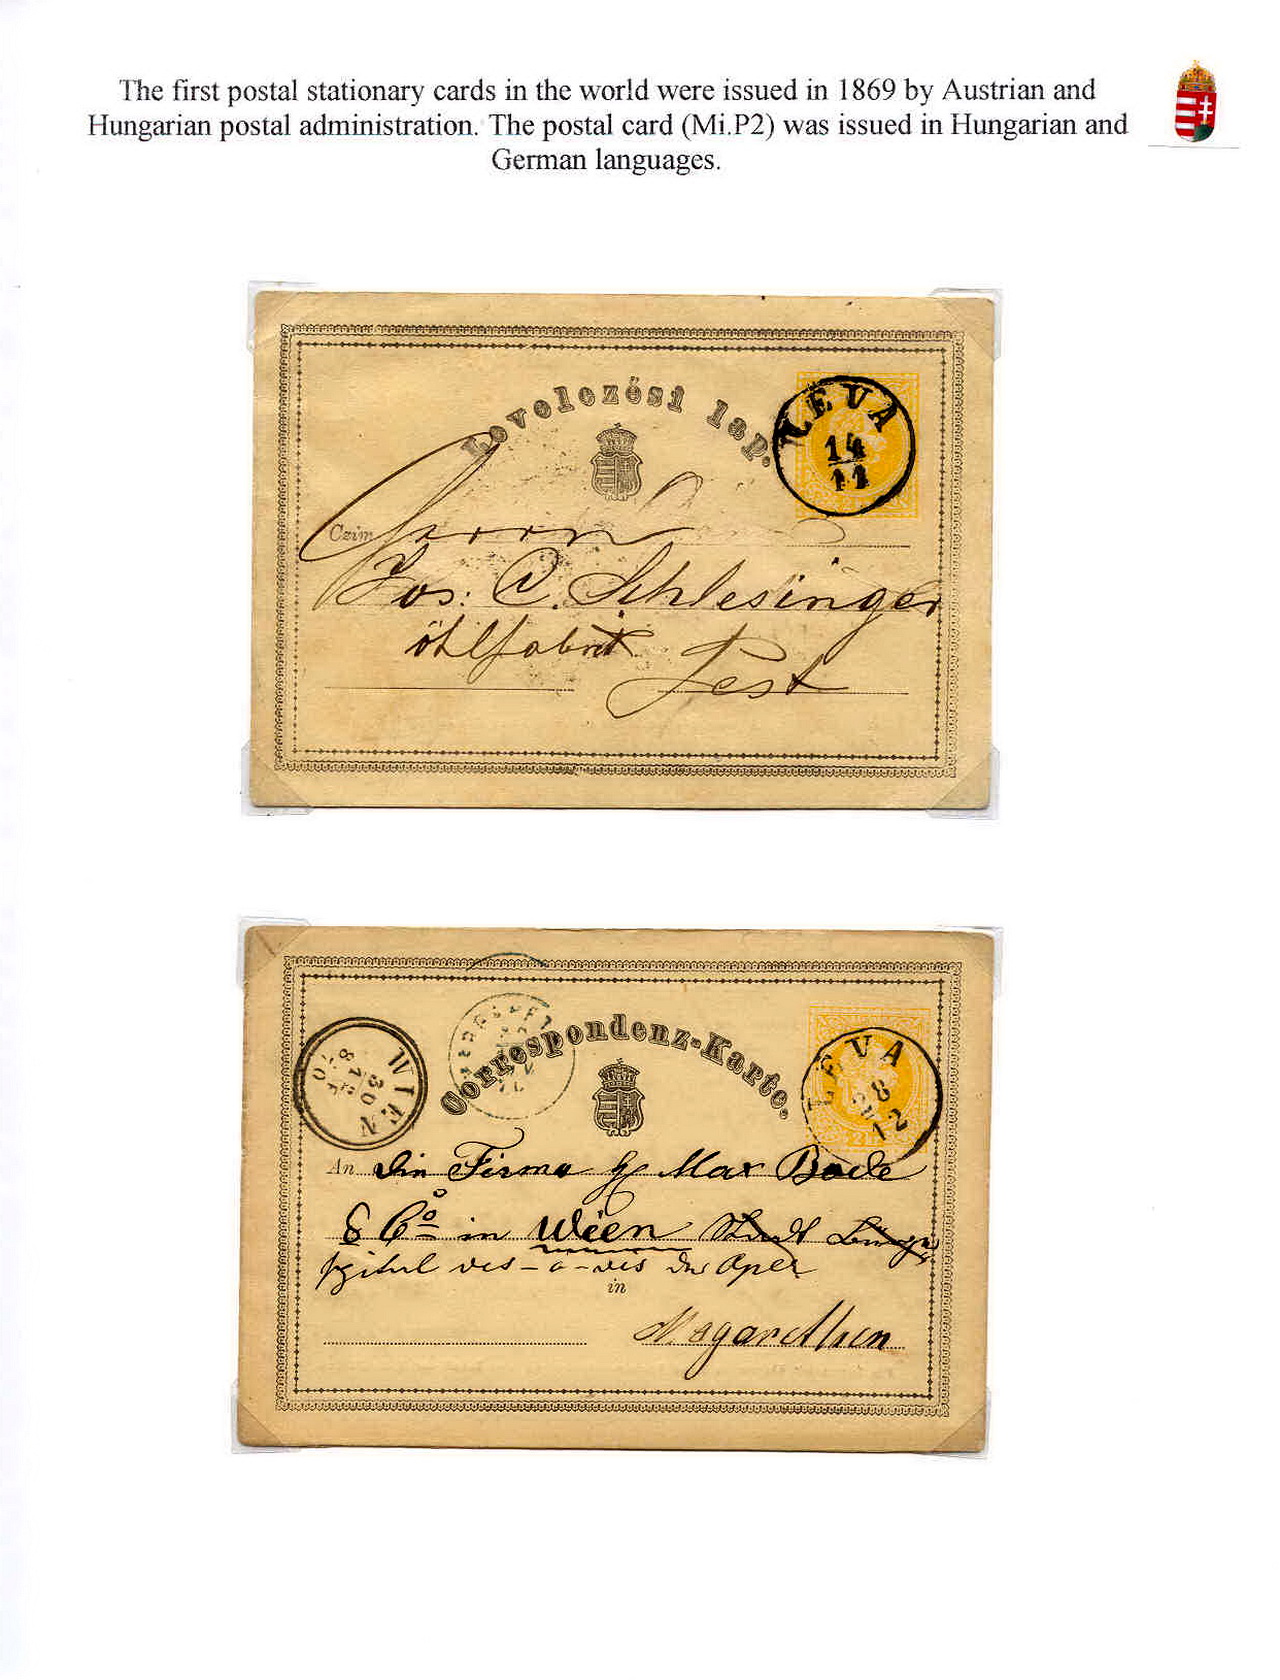 The first postal stationary cards in the world were issued in 1869 by Austrian and
Hungarian postal administration. The postal card (Mi.P2) was issued in Hungarian and
German languages.
Levelezési lap.
LÉVA
14
11
Czim
Herrn
Jos: C. Schlesinger
öhlfabrik Pest
Correspondenz-Karte.
LÉVA
8
12
WIEN
An Die Firma Max Bode
& Co in Wien Stadt
spital vis-a-vis der Oper
in